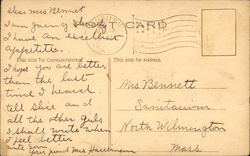 Dear Mrs Bennet
POST CARD
I have an excellent
appetite.
This side for Correspondence
This Side is for Address.
I hope you are better
than the last
time I heard.
tell Elsie and
all the other girls
I shall write when
I feel better
write soon
your friend Mrs
Mrs Bennett
Sanitarium
North Wilmington
Mass